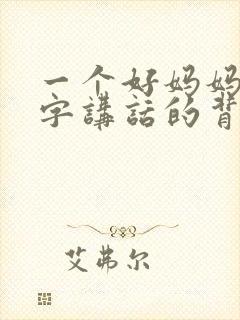 一个好妈妈
字講話的背
艾弗尔